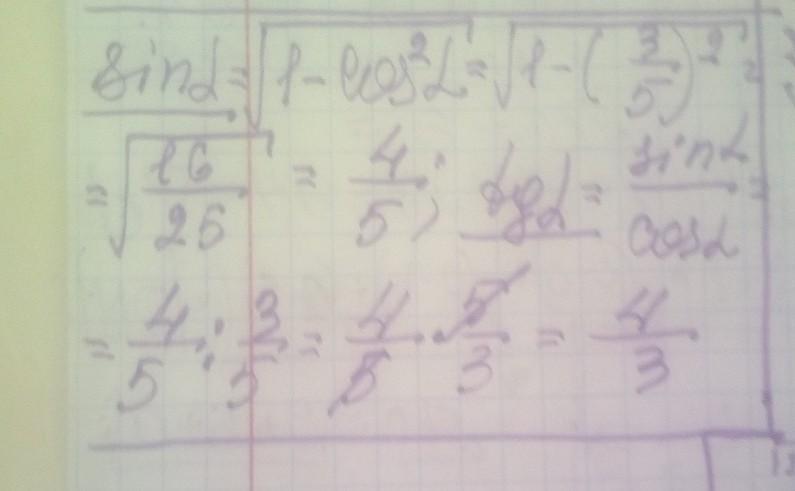 sinα = √(1 - cos²α) = √(1 - (3/5)²) =
= √(16/25) = 4/5; tgα = sinα/cosα =
= 4/5 : 3/5 = 4/5 · 5/3 = 4/3